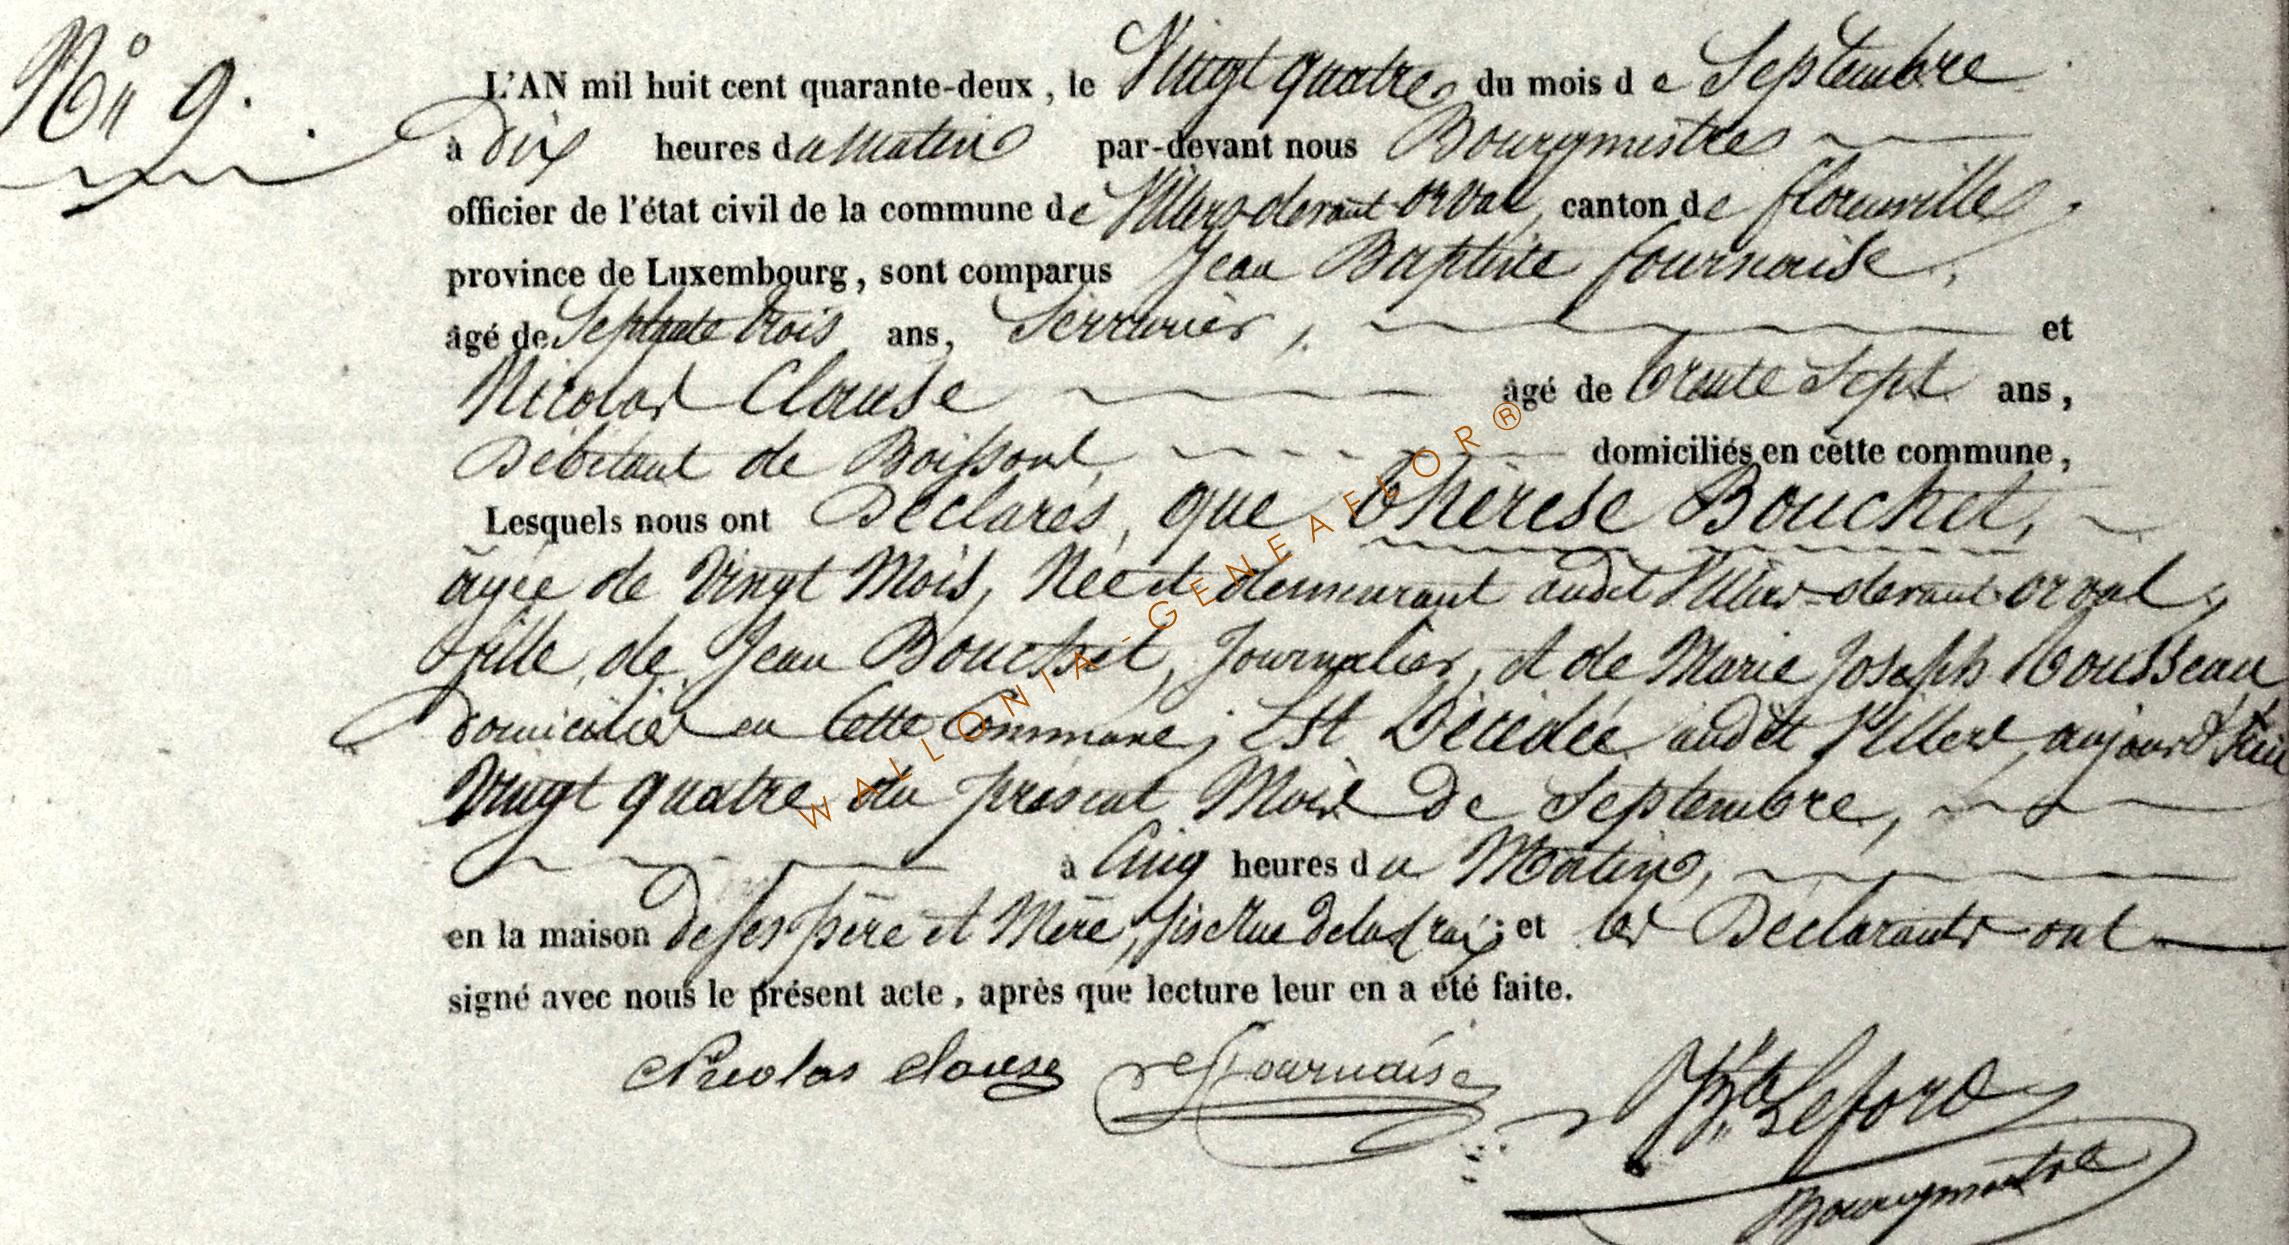 N° 9.
L'AN mil huit cent quarante-deux, le Vingt quatre du mois d e Septembre
à Dix heures du Matin par-devant nous Bourgmestre
officier de l'état civil de la commune de Villers-devant-orval, canton de florenville,
province de Luxembourg, sont comparus Jean Baptiste fournaise,
âgé de Septante trois ans, Serrurier, et
Nicolas Clause âgé de trente Sept ans,
Débitant de Boissons, domiciliés en cette commune,
Lesquels nous ont Déclarés, que thérèse Bouchet,
âgée de Vingt Mois, Née et demeurant audit Villers-devant-orval,
fille de Jean Bouchet, Journalier, et de Marie Joseph Rousseau
Domiciliés en Cette Commune; Est Décédée audit Villers, aujourd'hui
Vingt quatre du présent Mois De Septembre,
à Cinq heures du Matin,
en la maison de ses père et Mère, sise Rue de la Croix; et les Déclarants ont
signé avec nous le présent acte, après que lecture leur en a été faite.
Nicolas Clause Fournaise Leford
Bourgmestre
WALLONIA-GENEAFLOR®